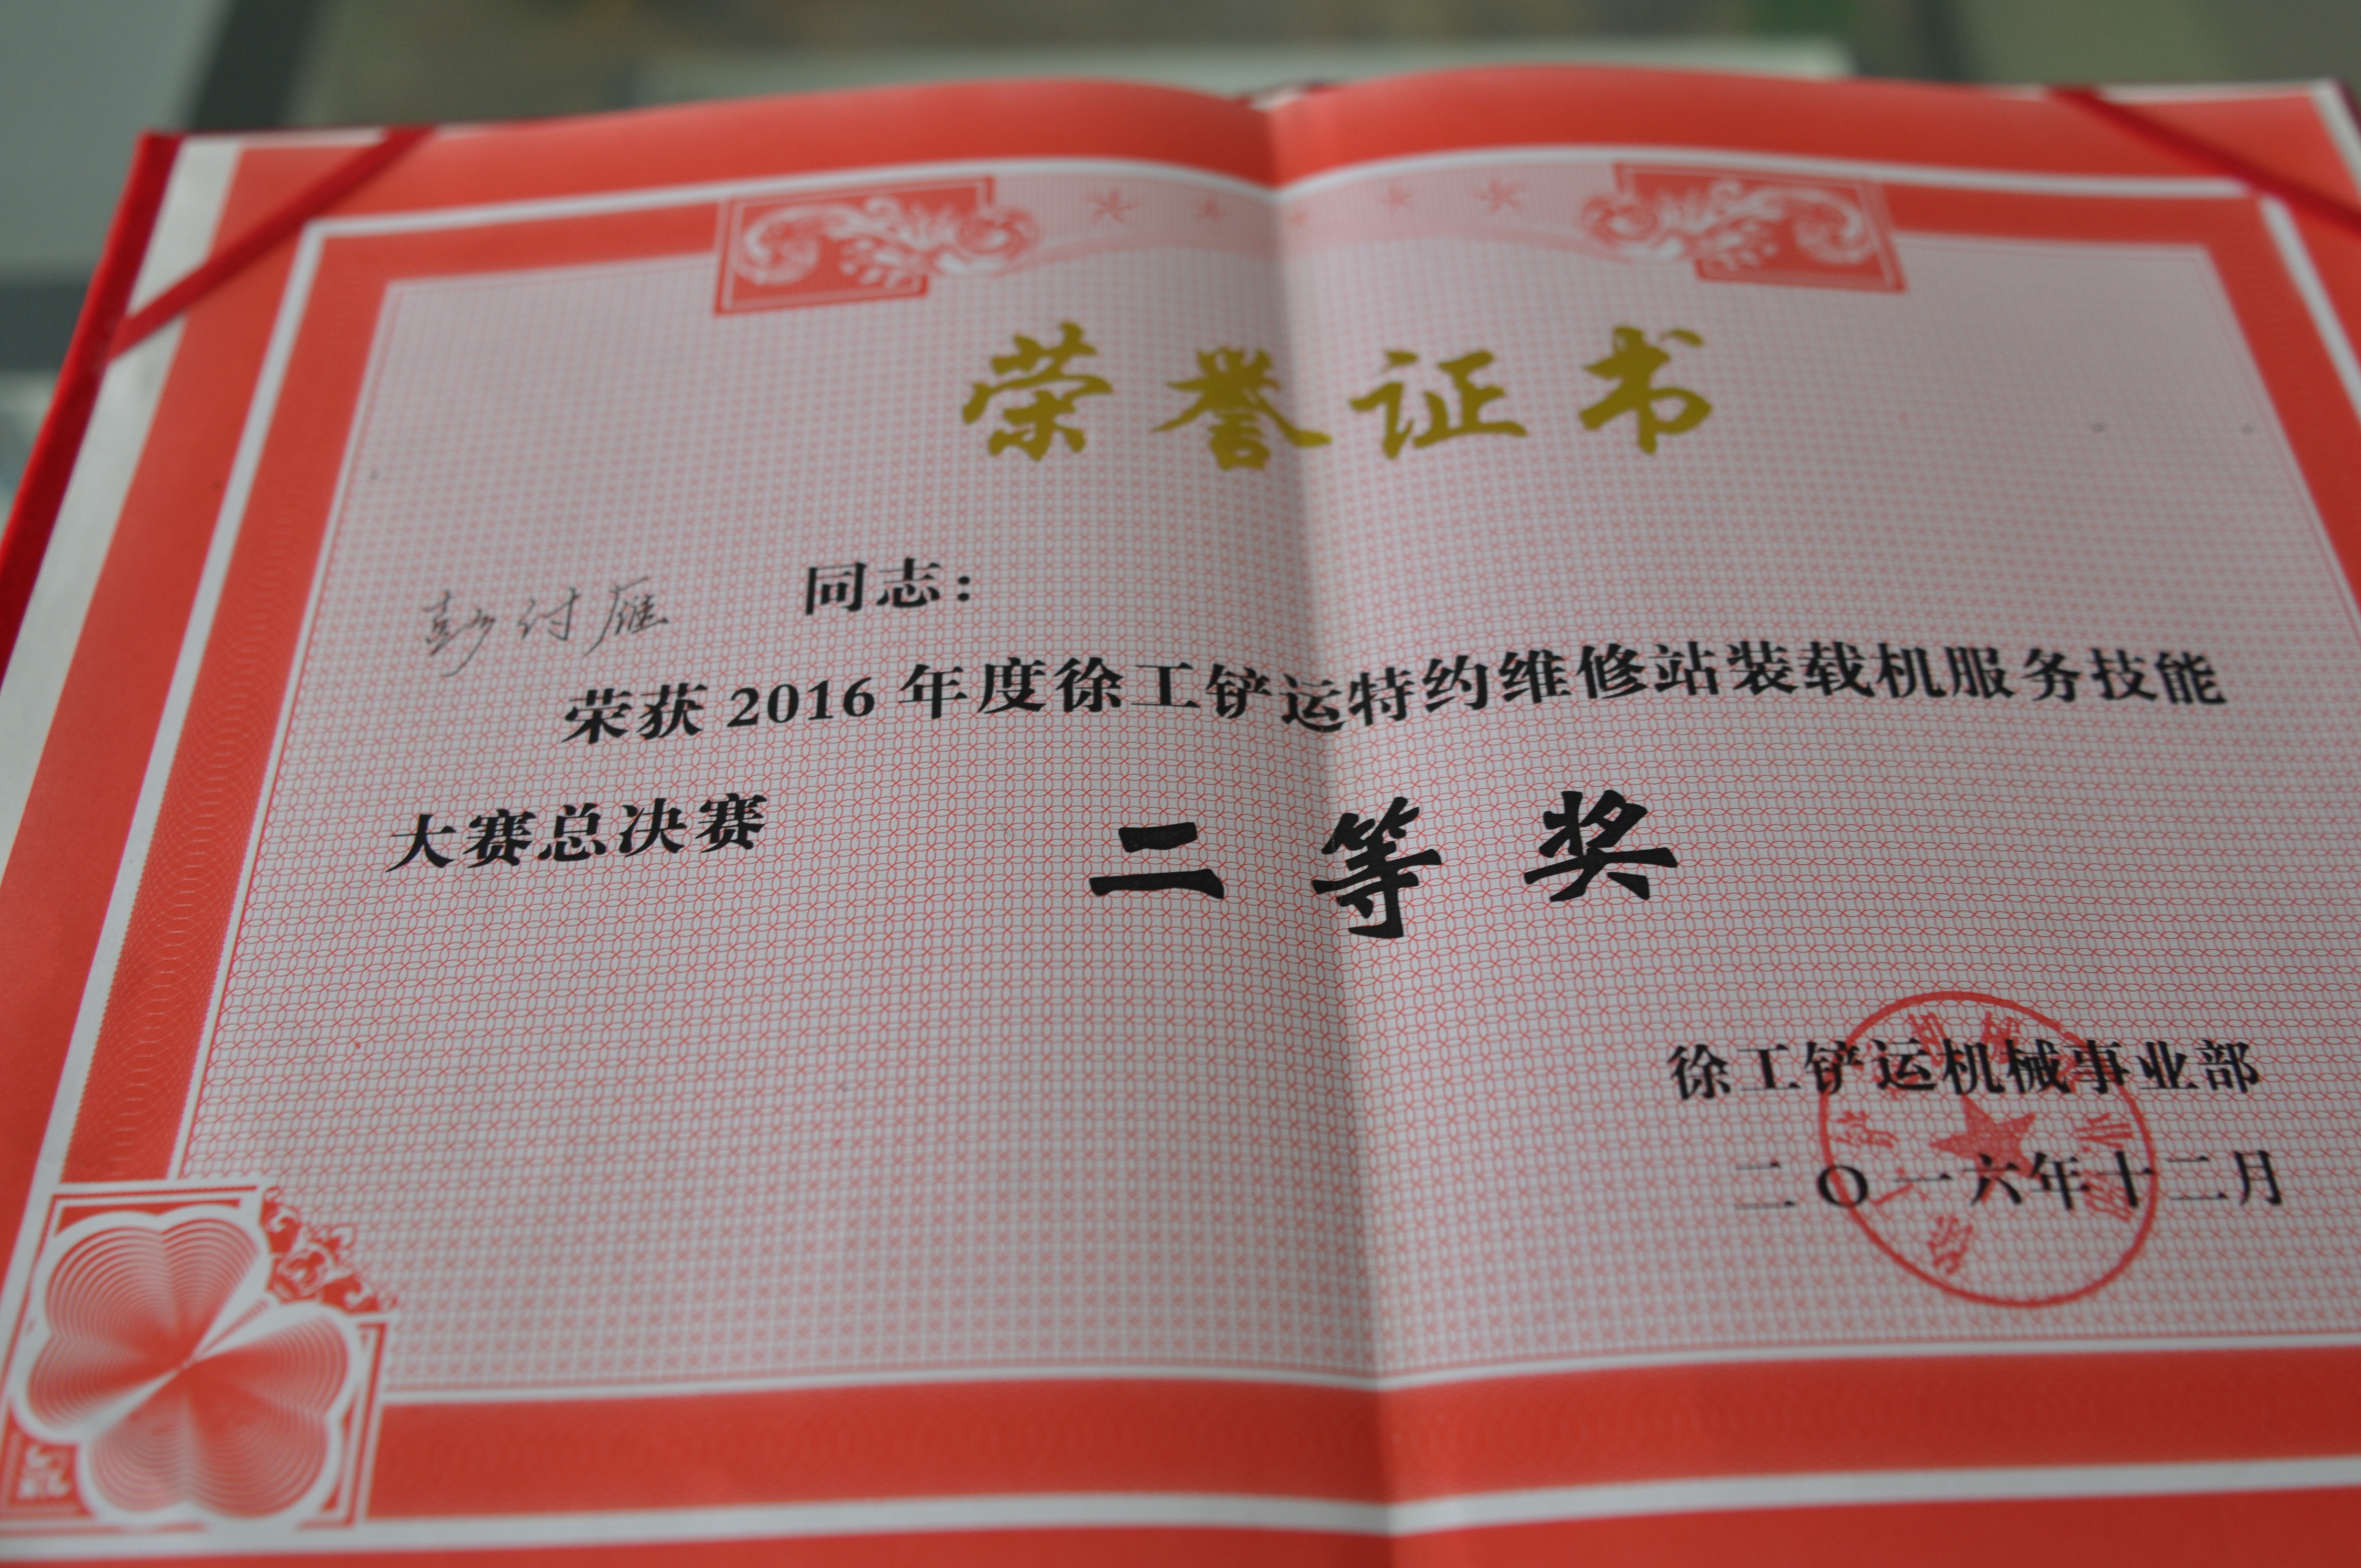 荣誉证书
彭付雁 同志：
荣获 2016 年度徐工铲运特约维修站装载机服务技能
大赛总决赛 二等奖
徐工铲运机械事业部
二〇一六年十二月